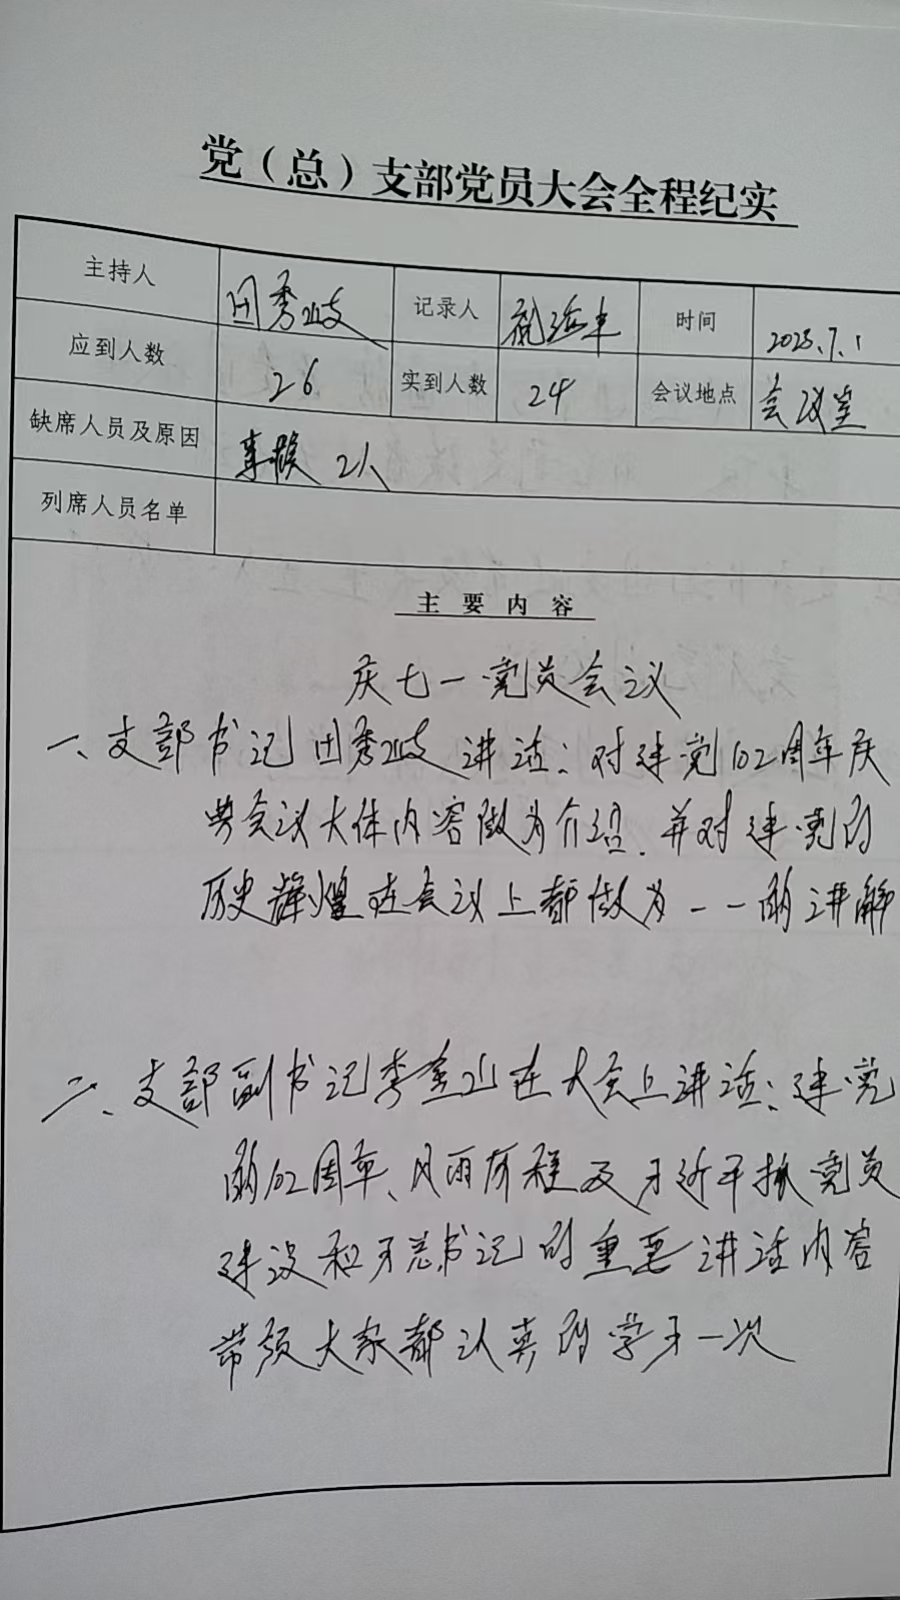 党（总）支部党员大会全程纪实
主持人 田秀岐 记录人 时间 2023.7.1
应到人数 26 实到人数 24 会议地点 会议室
缺席人员及原因 事假 2人
列席人员名单
主要内容
庆七一党员会议
一、支部书记田秀岐讲话：对建党102周年庆
典会议大体内容做为介绍.并对建党的
历史辉煌在会议上都做为一一的讲解
二、支部副书记李金山在大会上讲话：建党
的102周年、风雨历程及习近平抓党员
建设和习总书记的重要讲话内容
带领大家都认真的学习一次